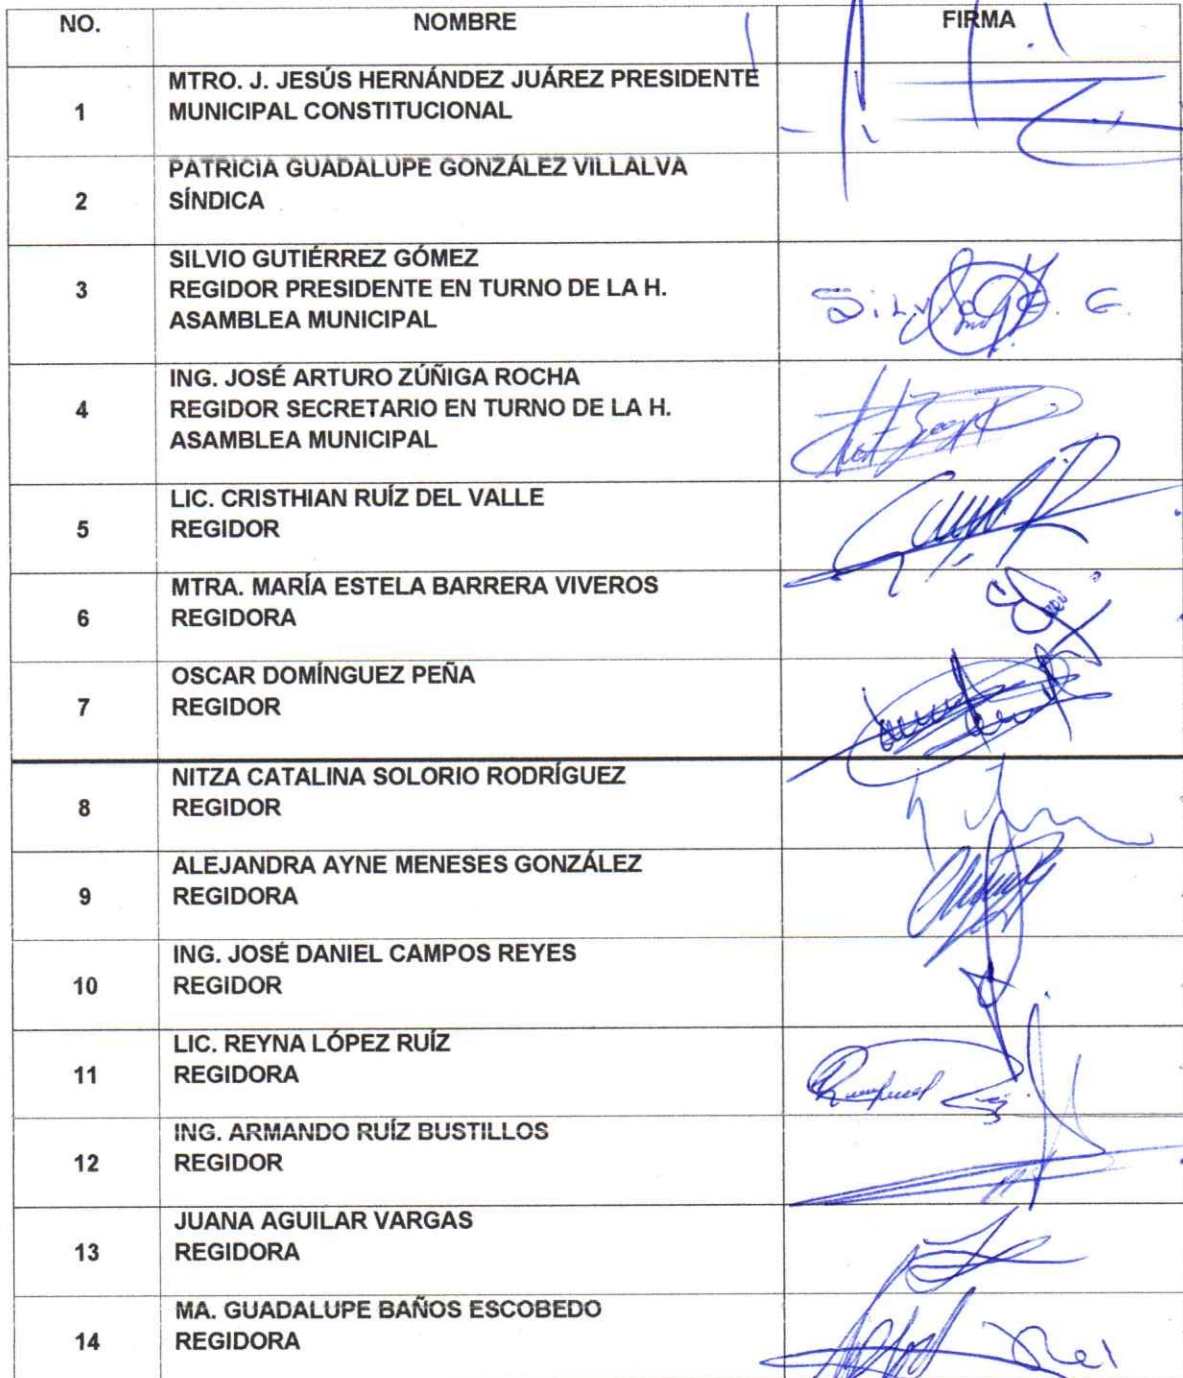 NO. NOMBRE FIRMA
1 MTRO. J. JESÚS HERNÁNDEZ JUÁREZ PRESIDENTE
MUNICIPAL CONSTITUCIONAL
2 PATRICIA GUADALUPE GONZÁLEZ VILLALVA
SÍNDICA
3 SILVIO GUTIÉRREZ GÓMEZ
REGIDOR PRESIDENTE EN TURNO DE LA H.
ASAMBLEA MUNICIPAL
4 ING. JOSÉ ARTURO ZÚÑIGA ROCHA
REGIDOR SECRETARIO EN TURNO DE LA H.
ASAMBLEA MUNICIPAL
5 LIC. CRISTHIAN RUÍZ DEL VALLE
REGIDOR
6 MTRA. MARÍA ESTELA BARRERA VIVEROS
REGIDORA
7 OSCAR DOMÍNGUEZ PEÑA
REGIDOR
8 NITZA CATALINA SOLORIO RODRÍGUEZ
REGIDOR
9 ALEJANDRA AYNE MENESES GONZÁLEZ
REGIDORA
10 ING. JOSÉ DANIEL CAMPOS REYES
REGIDOR
11 LIC. REYNA LÓPEZ RUÍZ
REGIDORA
12 ING. ARMANDO RUÍZ BUSTILLOS
REGIDOR
13 JUANA AGUILAR VARGAS
REGIDORA
14 MA. GUADALUPE BAÑOS ESCOBEDO
REGIDORA